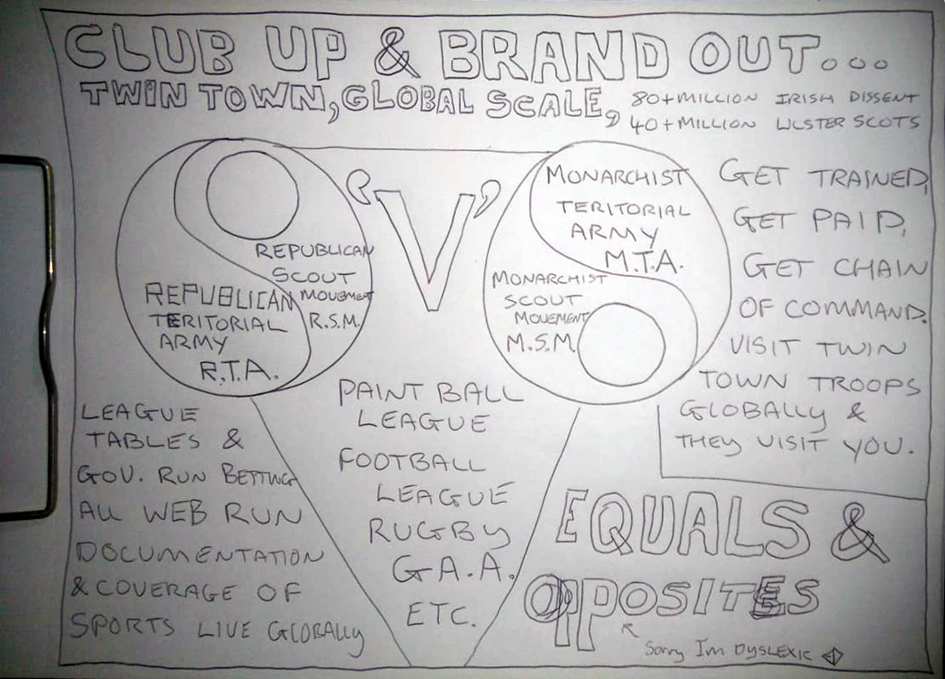 CLUB UP & BRAND OUT...
TWIN TOWN, GLOBAL SCALE,
80+MILLION IRISH DISSENT
40+MILLION ULSTER SCOTS
REPUBLICAN
SCOUT
MOVEMENT
R.S.M.
REPUBLICAN
TERITORIAL
ARMY
R.T.A.
'V'
MONARCHIST
TERITORIAL
ARMY
M.T.A.
MONARCHIST
SCOUT
MOVEMENT
M.S.M.
GET TRAINED,
GET PAID,
GET CHAIN
OF COMMAND.
VISIT TWIN
TOWN TROOPS
GLOBALLY &
THEY VISIT YOU.
LEAGUE
TABLES &
GOV. RUN BETTING
ALL WEB RUN
DOCUMENTATION
& COVERAGE OF
SPORTS LIVE GLOBALLY
PAINT BALL
LEAGUE
FOOTBALL
LEAGUE
RUGBY
G.A.A.
ETC.
EQUALS &
OPPOSITES
Sorry Im DYSLEXIC